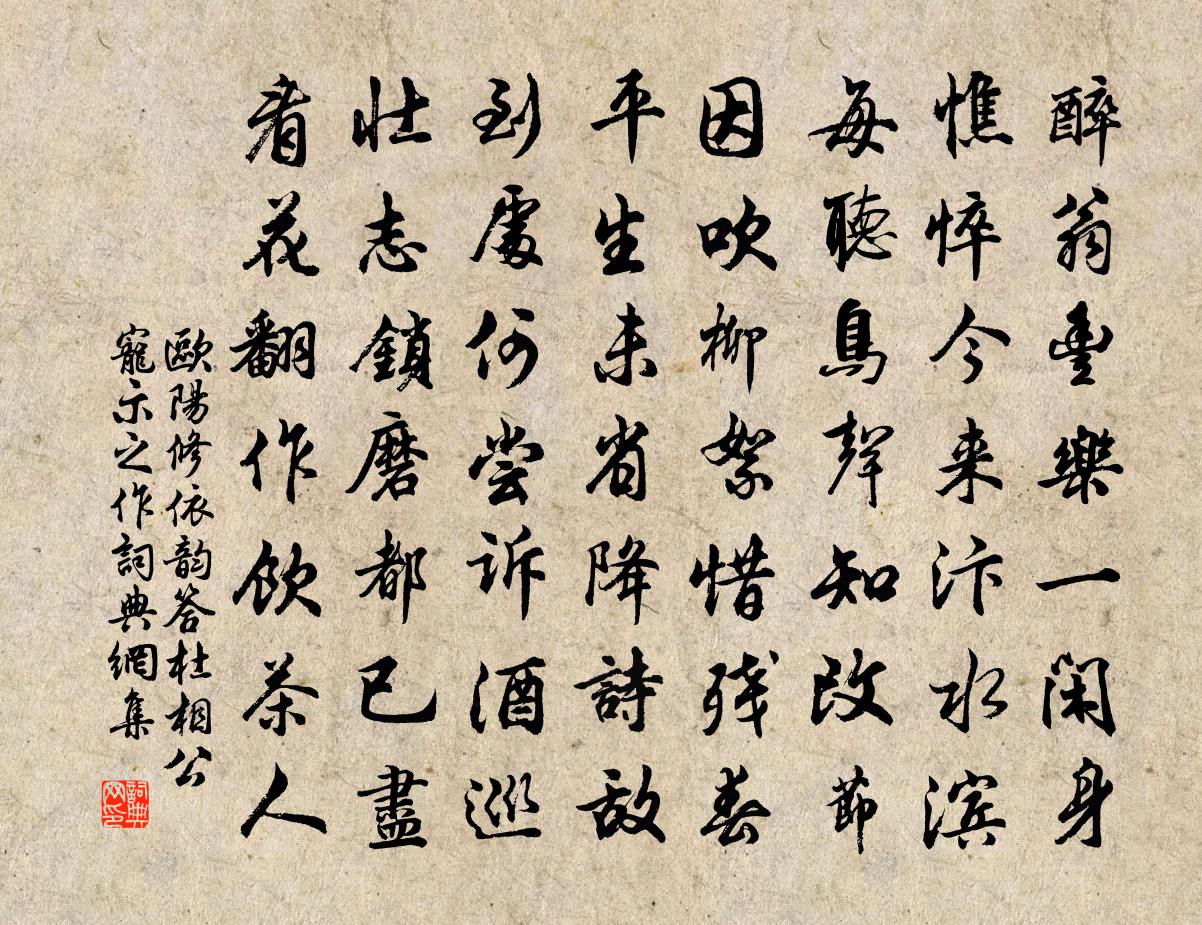 醉翁豊樂一閑身
憔悴今来汴水滨
每聽鳥聲知改節
因吹柳絮惜残春
平生未省降詩敵
到處何嘗訴酒巡
壮志鎖磨都已盡
看花翻作飲茶人
歐陽修依韵答杜相公
寵示之作詞典網集
詞典网印